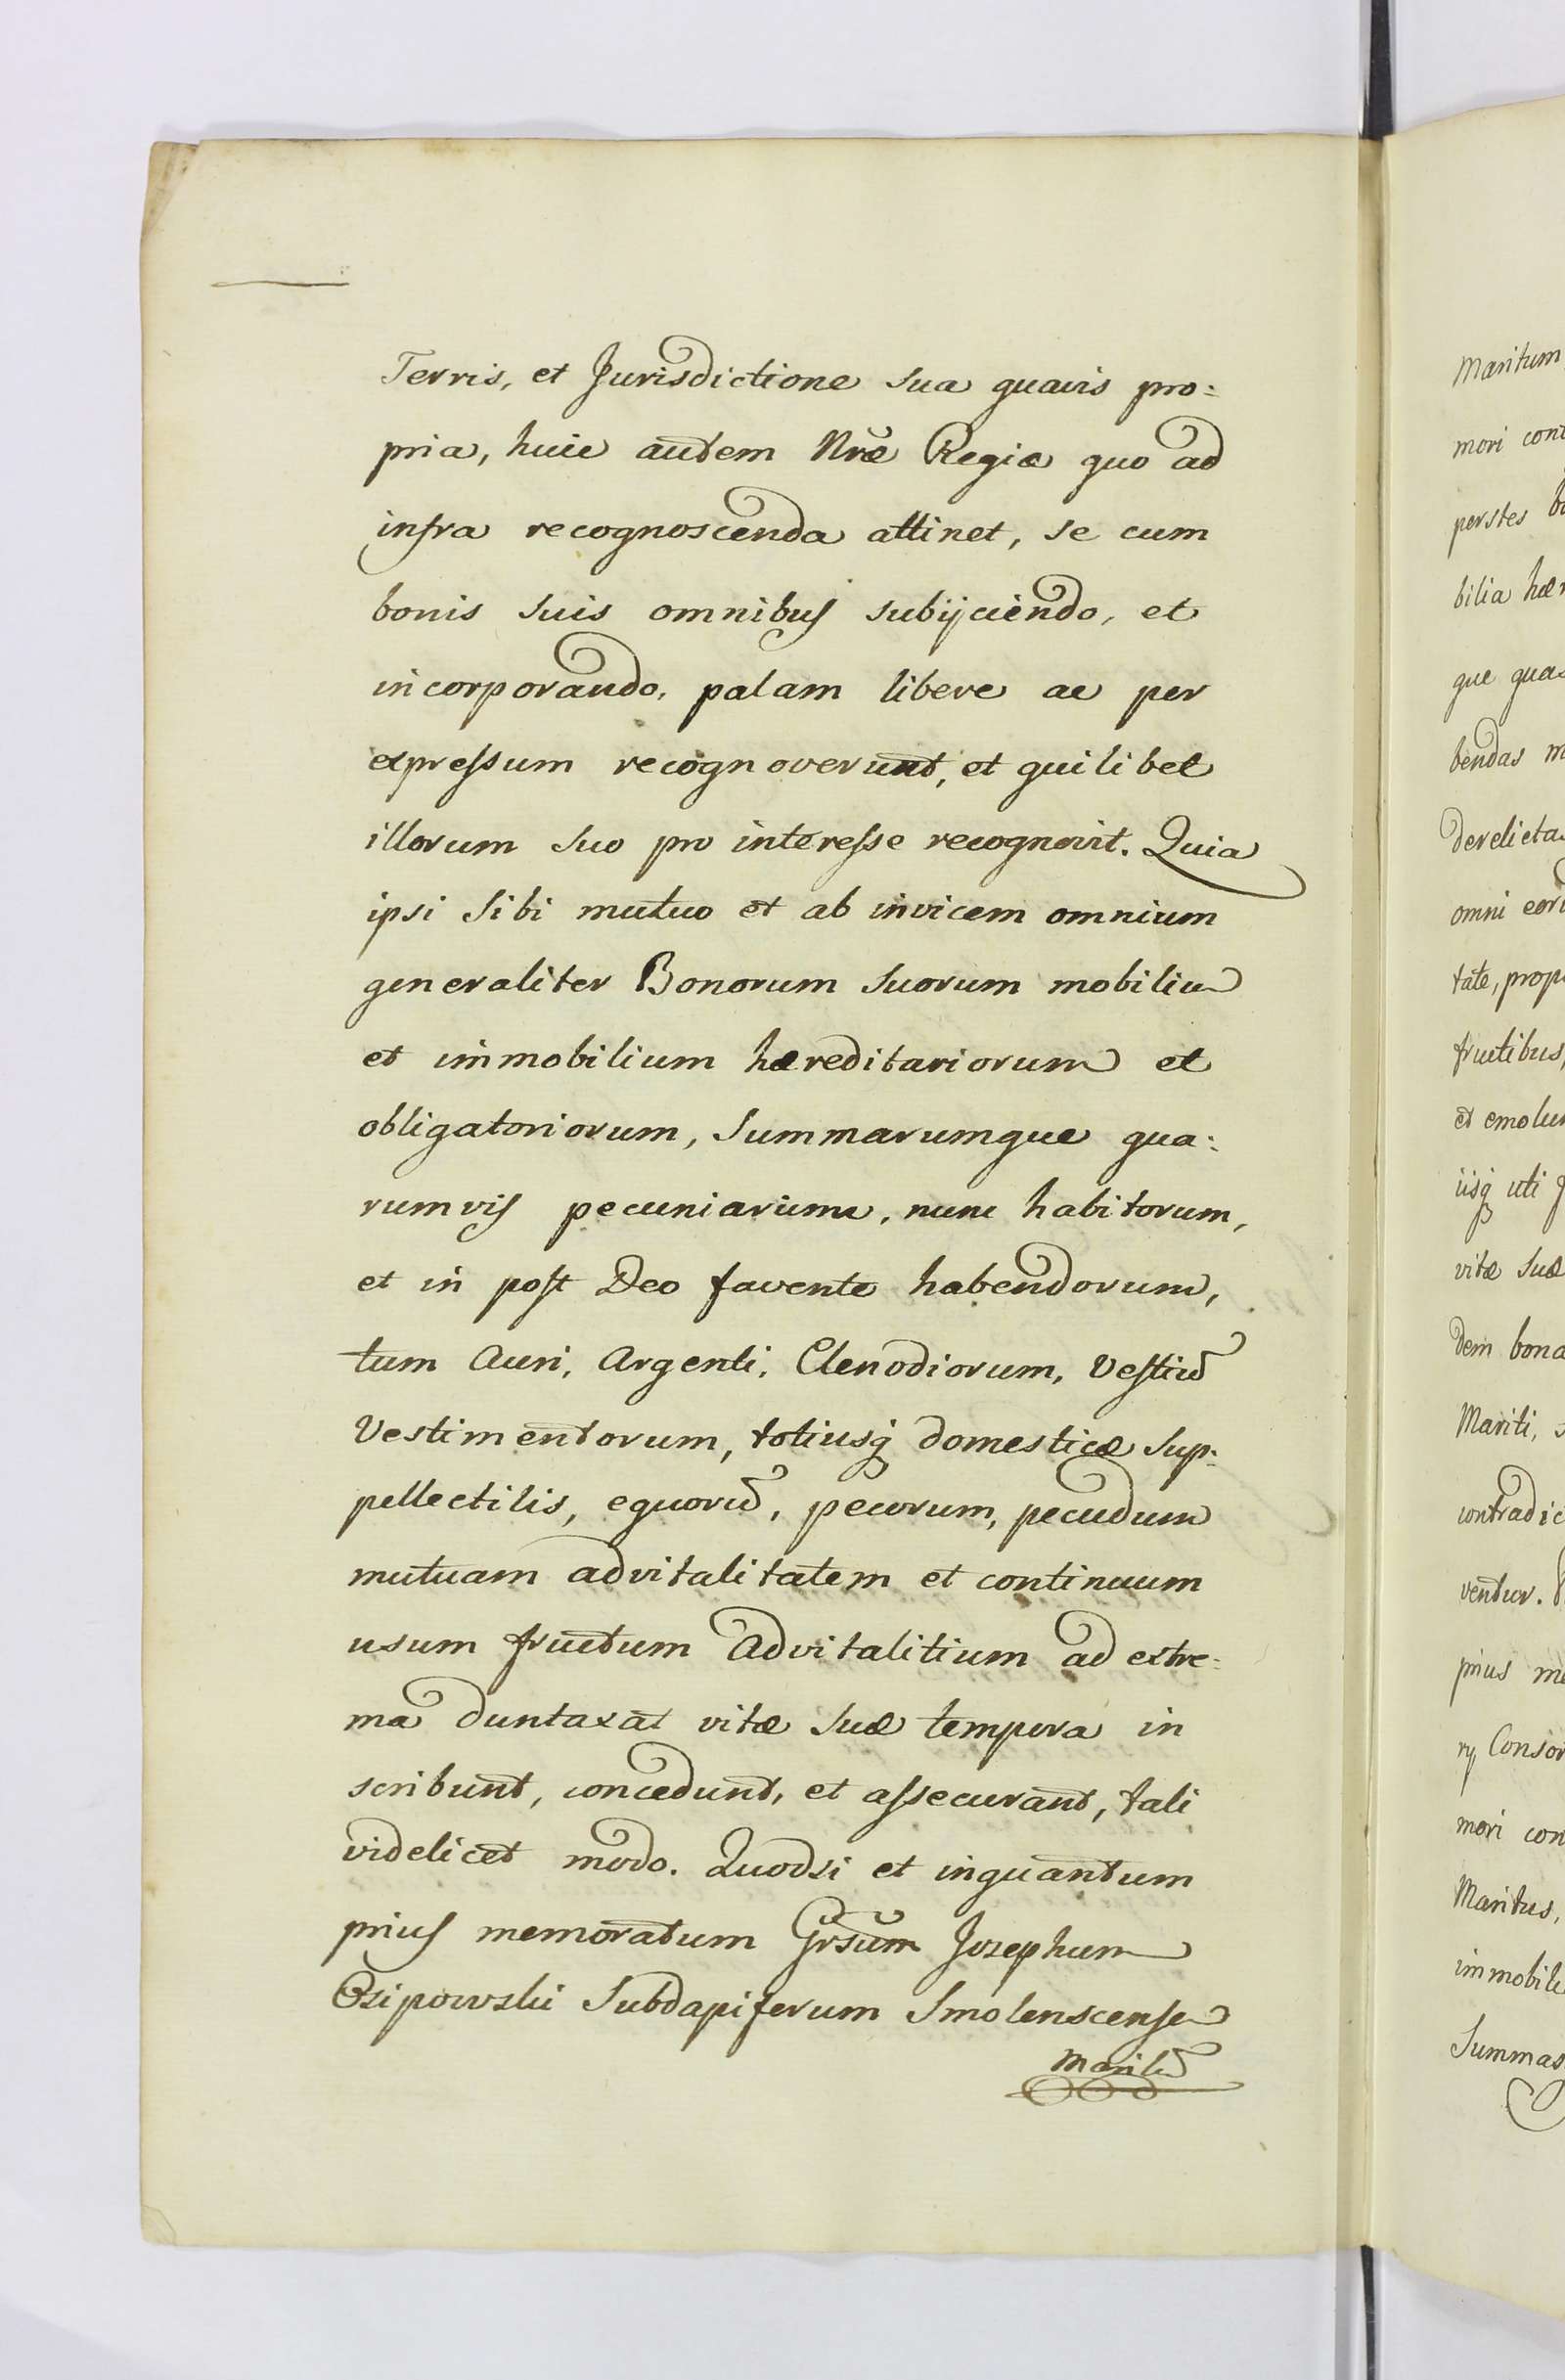 Terris, et Jurisdictione sua quavis pro:
pria, huic autem Nrae Regiae quo ad
infra recognoscenda attinet, se cum
bonis suis omnibus subijciendo, et
incorporando, palam libere ac per
expressum recognoverunt, et quilibet
illorum suo pro interesse recognovit. Quia
ipsi sibi mutuo et ab invicem omnium
generaliter Bonorum suorum mobiliu
et immobilium haereditariorum et
obligatoriorum, summarumque qua:
rumvis pecuniarum, nunc habitorum,
et in post Deo favente habendorum,
tum Auri, Argenti, Clenodiorum, Vestiu
Vestimentorum, totiusq domesticae sup:
pellectilis, equoru, pecorum, pecudum
mutuam advitalitatem et continuum
usum fructum advitalitium ad extre:
ma duntaxat vitae suae tempora in
scribunt, concedunt, et assecurant, tali
videlicet modo. Quodsi et inquantum
prius memoratum Grsum Josephum
Osipowski Subdapiferum Smolenscensem
Maritu
Maritum
mori
perstes
bilia
que
bendas
derelictas
omni
tate,
fructibus,
et
iisq uti
vitae suae
dem bona
Mariti,
ventur.
prius
rij
mori
Maritus,
Summas